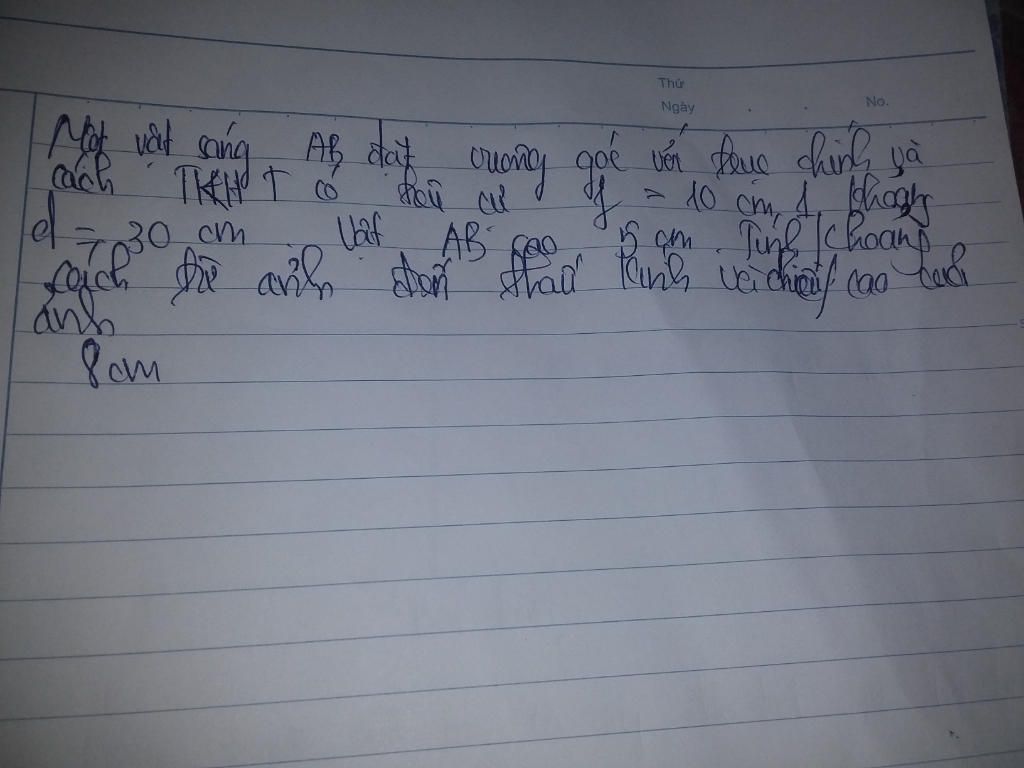 Thứ
Ngày . . No.
Một vật sáng AB đặt vuông góc với trục chính và
cách TKHT có tiêu cự f = 10 cm, 1 khoảng
d = 30 cm Vật AB cao 5 cm. Tính khoảng
cách từ ảnh đến thấu kính và chiều cao của
ảnh
8 cm